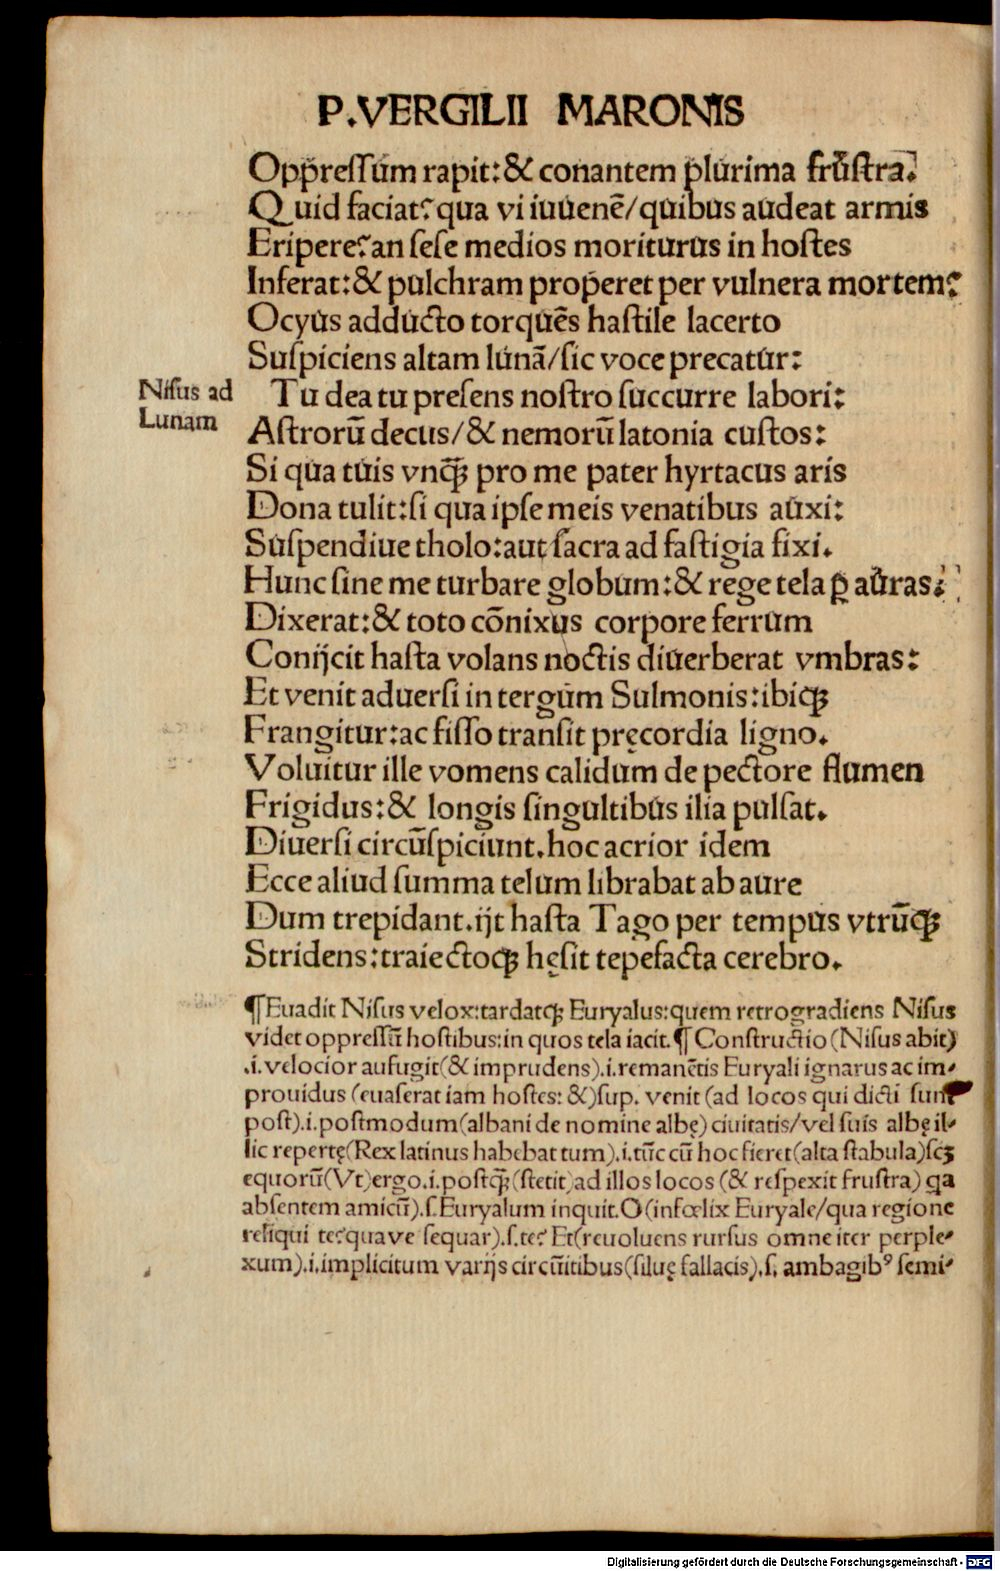 P.VERGILII MARONIS
Opp̄reſſum rapit:& conantem plurima fruſtra.
Quid faciat? qua vi iuuenē/quibus audeat armis
Eripere?an ſeſe medios moriturus in hoſtes
Inferat:& pulchram properet per vulnera mortem?
Ocyus adducto torquēs haſtile lacerto
Suſpiciens altam lunā/ſic voce precatur:
Niſus ad
Lunam
Tu dea tu preſens noſtro ſuccurre labori:
Aſtrorū decus/& nemorū latonia cuſtos:
Si qua tuis vnꝗ̄ pro me pater hyrtacus aris
Dona tulit:ſi qua ipſe meis venatibus auxi:
Suſpendiue tholo:aut ſacra ad faſtigia fixi.
Hunc ſine me turbare globum:& rege tela ꝑ auras.
Dixerat:& toto cōnixus corpore ferrum
Conijcit haſta volans noctis diuerberat vmbras:
Et venit aduerſi in tergum Sulmonis:ibiqꝫ
Frangitur:ac fiſſo tranſit pręcordia ligno.
Voluitur ille vomens calidum de pectore flumen
Frigidus:& longis ſingultibus ilia pulſat.
Diuerſi circūſpiciunt.hoc acrior idem
Ecce aliud ſumma telum librabat ab aure
Dum trepidant.ijt haſta Tago per tempus vtrūqꝫ
Stridens:traiectoqꝫ hęſit tepefacta cerebro.
¶Euadit Niſus velox:tardatqꝫ Euryalus:quem retrogradiens Niſus
videt oppreſſū hoſtibus:in quos tela iacit.¶ Conſtructio(Niſus abit)
.i.velocior aufugit(& imprudens).i.remanētis Euryali ignarus ac im⸗
prouidus (euaſerat iam hoſtes: &)ſup. venit (ad locos qui dicti ſunt
poſt).i.poſtmodum(albani de nomine albę) ciuitatis/vel ſuis albę il⸗
lic repertę(Rex latinus habebat tum).i.tūc cū hoc fieret(alta ſtabula)ſcꝫ
equorū(Vt)ergo.i.poſtꝗ̄(ſtetit)ad illos locos (& reſpexit fruſtra) qa
abſentem amicū).ſ.Euryalum inquit.O(infœlix Euryale/qua regione
reliqui te?quave ſequar).ſ.te? Et(reuoluens rurſus omne iter perple⸗
xum).i.implicitum varijs circūitibus(ſiluę fallacis).ſ. ambagibꝰ ſemi⸗
Digitalisierung gefördert durch die Deutsche Forschungsgemeinschaft - DFG